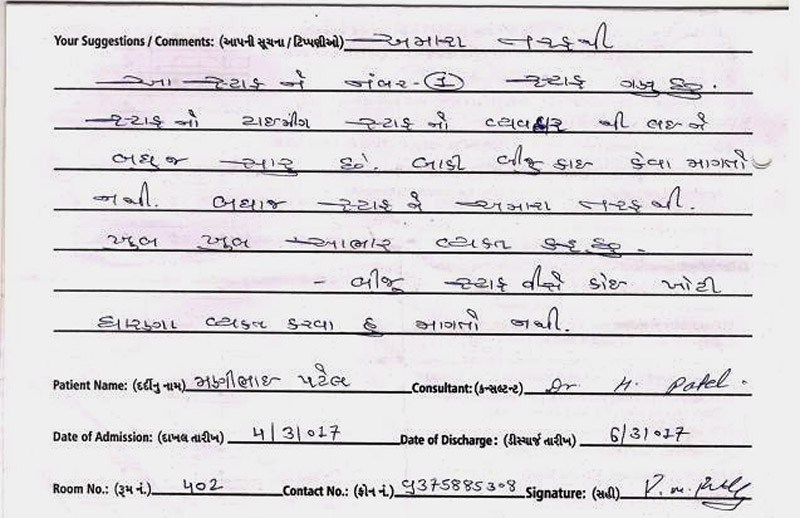 Your Suggestions / Comments: (આપની સૂચના / ટિપ્પણીઓ) અમારા તરફથી
આ સ્ટાફ ને નંબર-① સ્ટાફ ગણુ છુ.
સ્ટાફ નો ટાઇમીંગ સ્ટાફ નો વ્યવહાર થી લઇ ને
બધુ જ સારુ છે. બાકી બીજુ કાઇ કેવા માગતો
નથી. બધાજ સ્ટાફ ને અમારા તરફથી.
ખુબ ખુબ આભાર વ્યક્ત કરુ છુ.
- બીજૂ સ્ટાફ વીશે કોઇ ખોટી
ધારણા વ્યકત કરવા હુ માગતો નથી.
Patient Name: (દર્દીનુ નામ) મણીભાઇ પટેલ Consultant: (કન્સલ્ટન્ટ) Dr H. Patel.
Date of Admission: (દાખલ તારીખ) 4/3/017 Date of Discharge: (ડીસ્ચાર્જ તારીખ) 6/3/017
Room No.: (રૂમ નં.) 402 Contact No.: (ફોન નં.) 9375885308 Signature: (સહી)